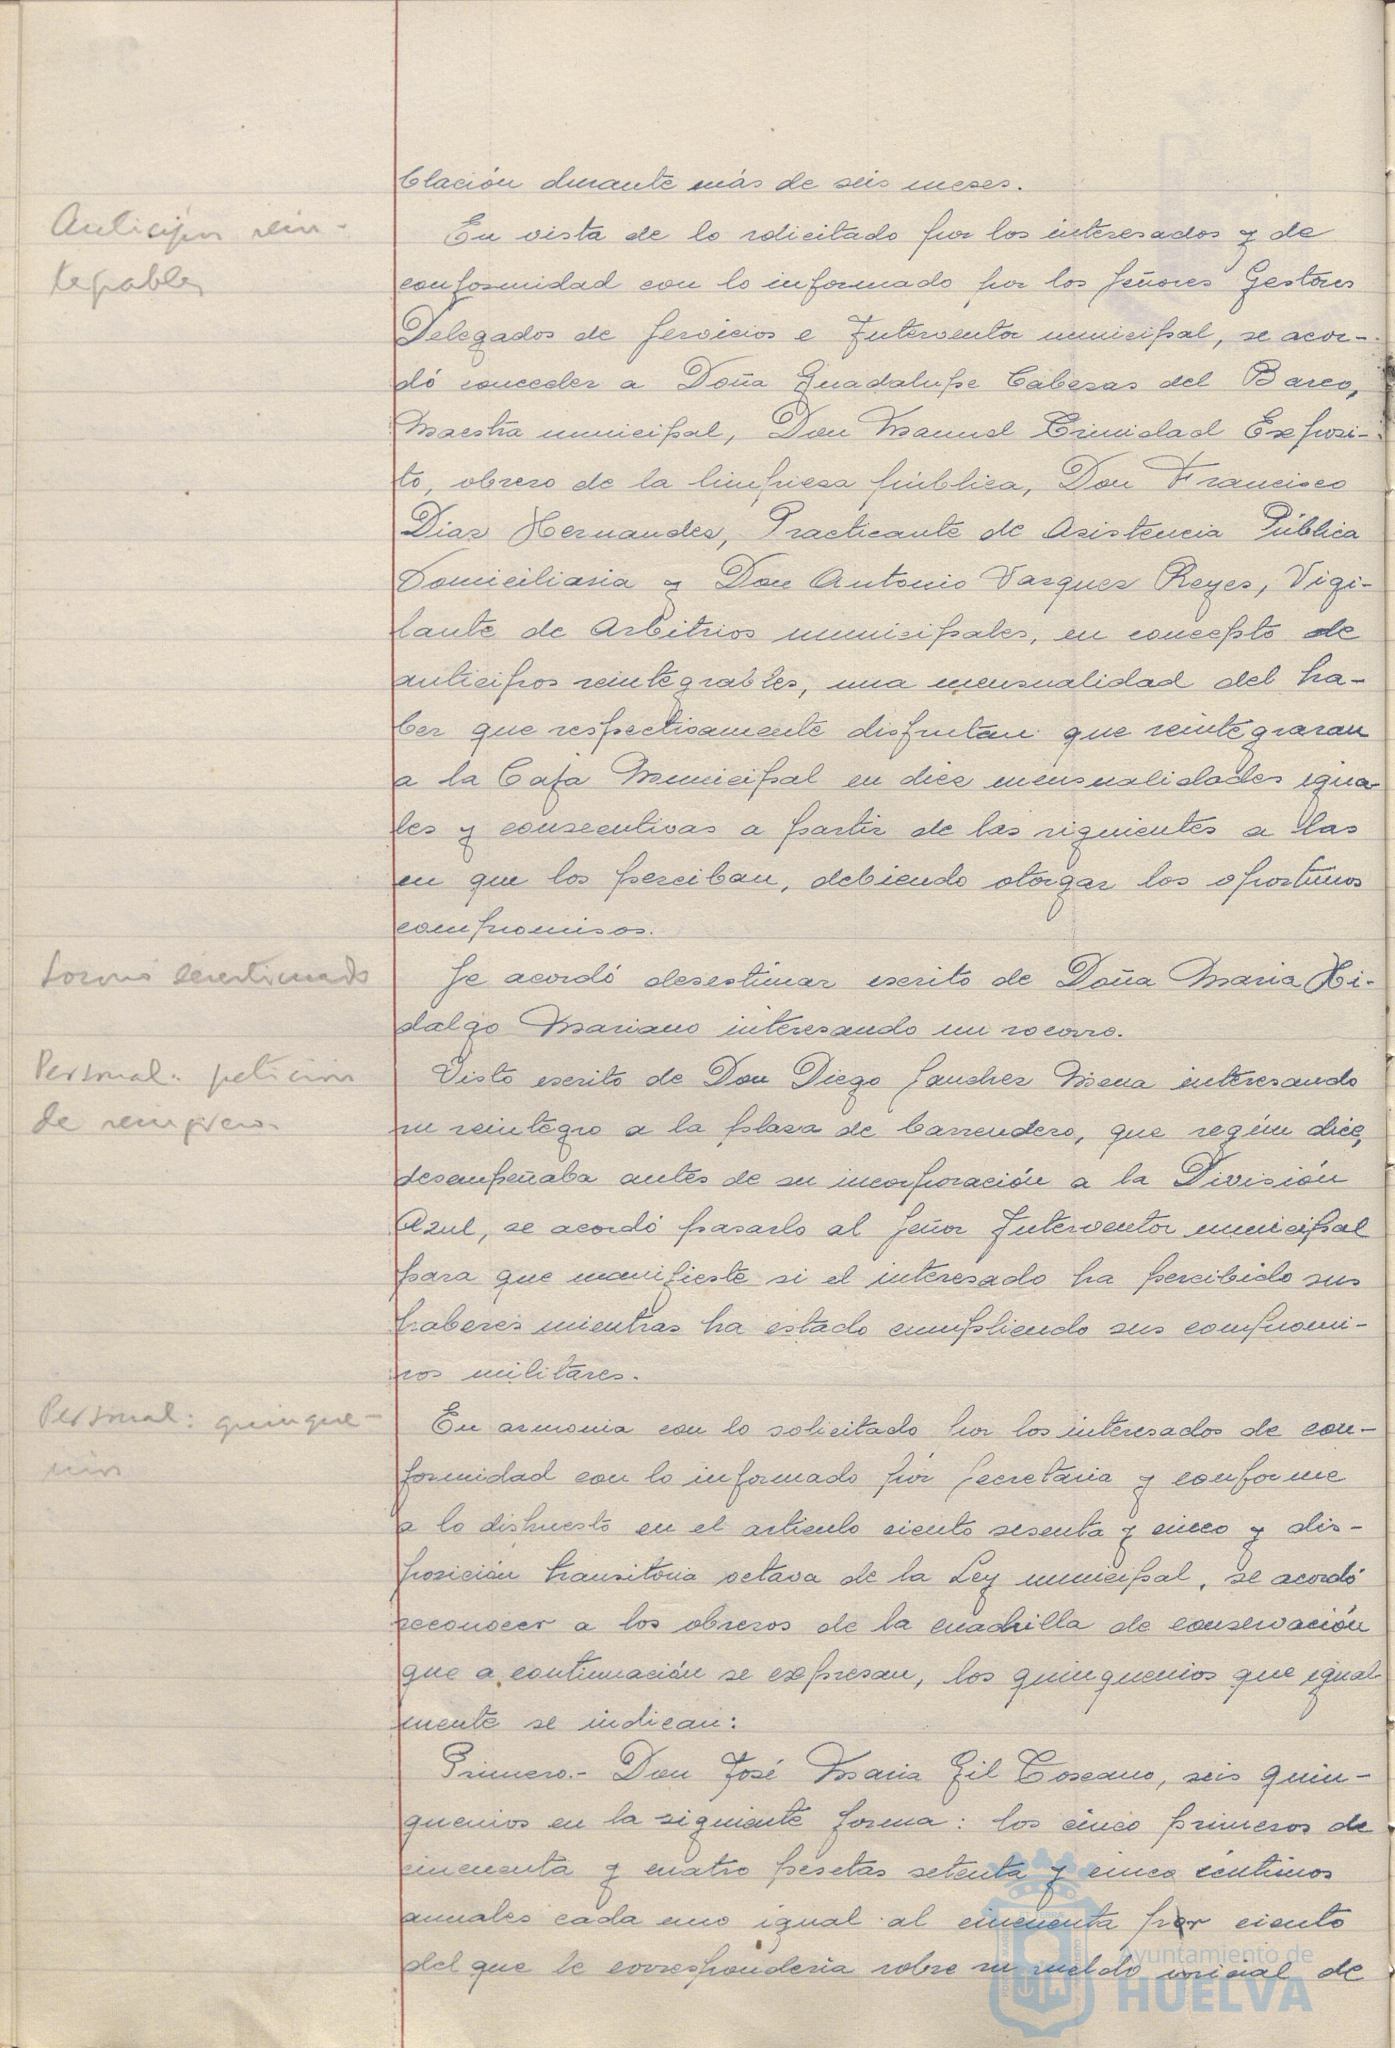 blación durante más de seis meses.
Anticipos rein-
tegrables
En vista de lo solicitado por los interesados y de
conformidad con lo informado por los señores Gestores
Delegados de Servicios e Interventor municipal, se acor-
dó conceder a Doña Guadalupe Cabezas del Barco,
Maestra municipal, Don Manuel Trinidad Expósi-
to, obrero de la limpieza pública, Don Francisco
Diaz Hernandez, Practicante de Asistencia Pública
Domiciliaria y Don Antonio Vazquez Reyes, Vigi-
lante de Arbitrios municipales, en concepto de
anticipos reintegrables, una mensualidad del ha-
ber que respectivamente disfrutan que reintegraran
a la Caja Municipal en diez mensualidades igua-
les y consecutivas a partir de las siguientes a las
en que los perciban, debiendo otorgar los oportunos
compromisos.
Socorro desestimado
Se acordó desestimar escrito de Doña Maria Hi-
dalgo Mariano interesando un socorro.
Personal: petición
de reingreso.
Visto escrito de Don Diego Sanchez Mena interesando
su reintegro a la plaza de barrendero, que según dice,
desempeñaba antes de su incorporación a la División
Azul, se acordó pasarlo al Señor Interventor municipal
para que manifieste si el interesado ha percibido sus
haberes mientras ha estado cumpliendo sus compromi-
sos militares.
Personal: quinque-
nios
En armonia con lo solicitado por los interesados de con-
formidad con lo informado por Secretaria y conforme
a lo dispuesto en el articulo ciento sesenta y cinco y dis-
posición transitoria octava de la Ley municipal, se acordó
reconocer a los obreros de la cuadrilla de conservación
que a continuación se expresan, los quinquenios que igual-
mente se indican:
Primero.- Don José Maria Gil Toscano, seis quin-
quenios en la siguiente forma: los cinco primeros de
cincuenta y cuatro pesetas setenta y cinco centimos
anuales cada uno igual al cincuenta por ciento
del que le corresponderia sobre su sueldo inicial de
Ayuntamiento de
HUELVA